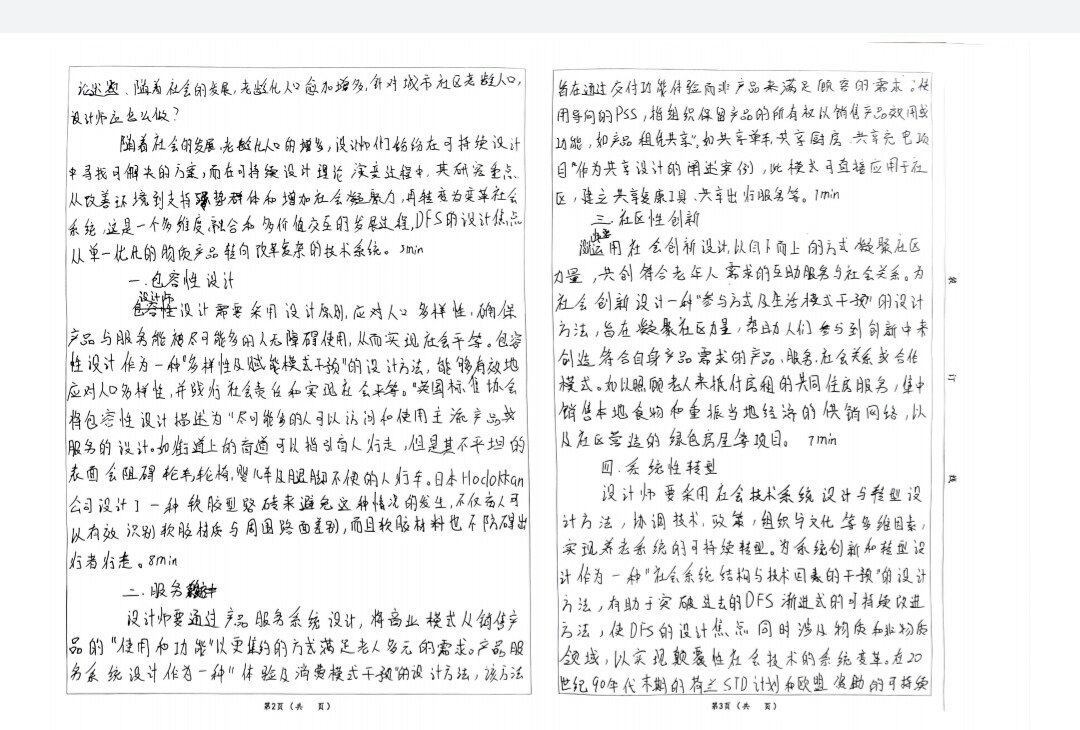 论述题、随着社会的发展,老龄化人口愈加增多,针对城市社区老龄人口,
设计师应怎么做?
随着社会的发展,老龄化人口的增多,设计师们纷纷在可持续设计
中寻找可解决的方案,而在可持续设计理论演变过程中,其研究重点
从改善环境到支持弱势群体和增加社会凝聚力,再转变为变革社会
系统,这是一个多维度融合和多价值交互的发展过程,DFS的设计焦点
从单一优化的物质产品转向改革复杂的技术系统。3min
一.包容性设计
设计师
包容性设计需要采用设计原则,应对人口多样性,确保
产品与服务能被尽可能多的人无障碍使用,从而实现社会平等。包容
性设计作为一种"多样性及赋能模式干预"的设计方法,能够有效地
应对人口多样性,并践行社会责任和实现社会平等。"英国标准协会
将包容性设计描述为"尽可能多的人可以访问和使用主流产品或
服务的设计。如街道上的盲道可以指引盲人行走,但是其不平坦的
表面会阻碍轮毛轮椅,婴儿车及腿脚不便的人行车。日本Hodohkan
公司设计了一种软胶型路砖来避免这种情况的发生,不仅盲人可
以有效识别软胶材质与周围路面差别,而且软胶材料也不防碍出
行者行走。8min
二.服务
设计师要通过产品服务系统设计,将商业模式从销售产
品的"使用和功能"以更集约的方式满足老人多元的需求。产品服
务系统设计作为一种"体验及消费模式干预"的设计方法,该方法
第2页(共 页)
旨在通过交付功能体验而非产品来满足顾客的需求。使
用导向的PSS,指组织保留产品的所有权以销售产品效用或
功能,如产品租凭共享",如共享单车,共享厨房、共享充电项
目"作为共享设计的阐述案例),此模式可直接应用于社
区,建立共享复康工具、共享出行服务等。7min
三.社区性创新
运用社会创新设计,以自下而上的方式凝聚社区
力量,共创符合老年人需求的互助服务与社会关系。为
社会创新设计一种"参与方式及生活模式干预"的设计
方法,旨在凝聚社区力量,帮助人们参与到创新中来
创造符合自身产品需求的产品、服务、社会关系或合作
模式。如以照顾老人来抵付房租的共同住房服务,集中
销售本地食物和重振当地经济的供销网络,以
及社区营造的绿色房屋等项目。7min
四.系统性转型
设计师要采用社会技术系统设计与转型设
计方法,协调技术,政策,组织与文化等多维因素,
实现养老系统的可持续转型。为系统创新和转型设
计作为一种"社会系统结构与技术因素的干预"的设计
方法,有助于突破过去的DFS渐进式的可持续改进
方法,使DFS的设计焦点同时涉及物质和非物质
领域,以实现颠覆性社会技术的系统变革。在20
世纪90年代末期的荷兰STD计划和欧盟资助的可持续
第3页(共 页)
装
订
线